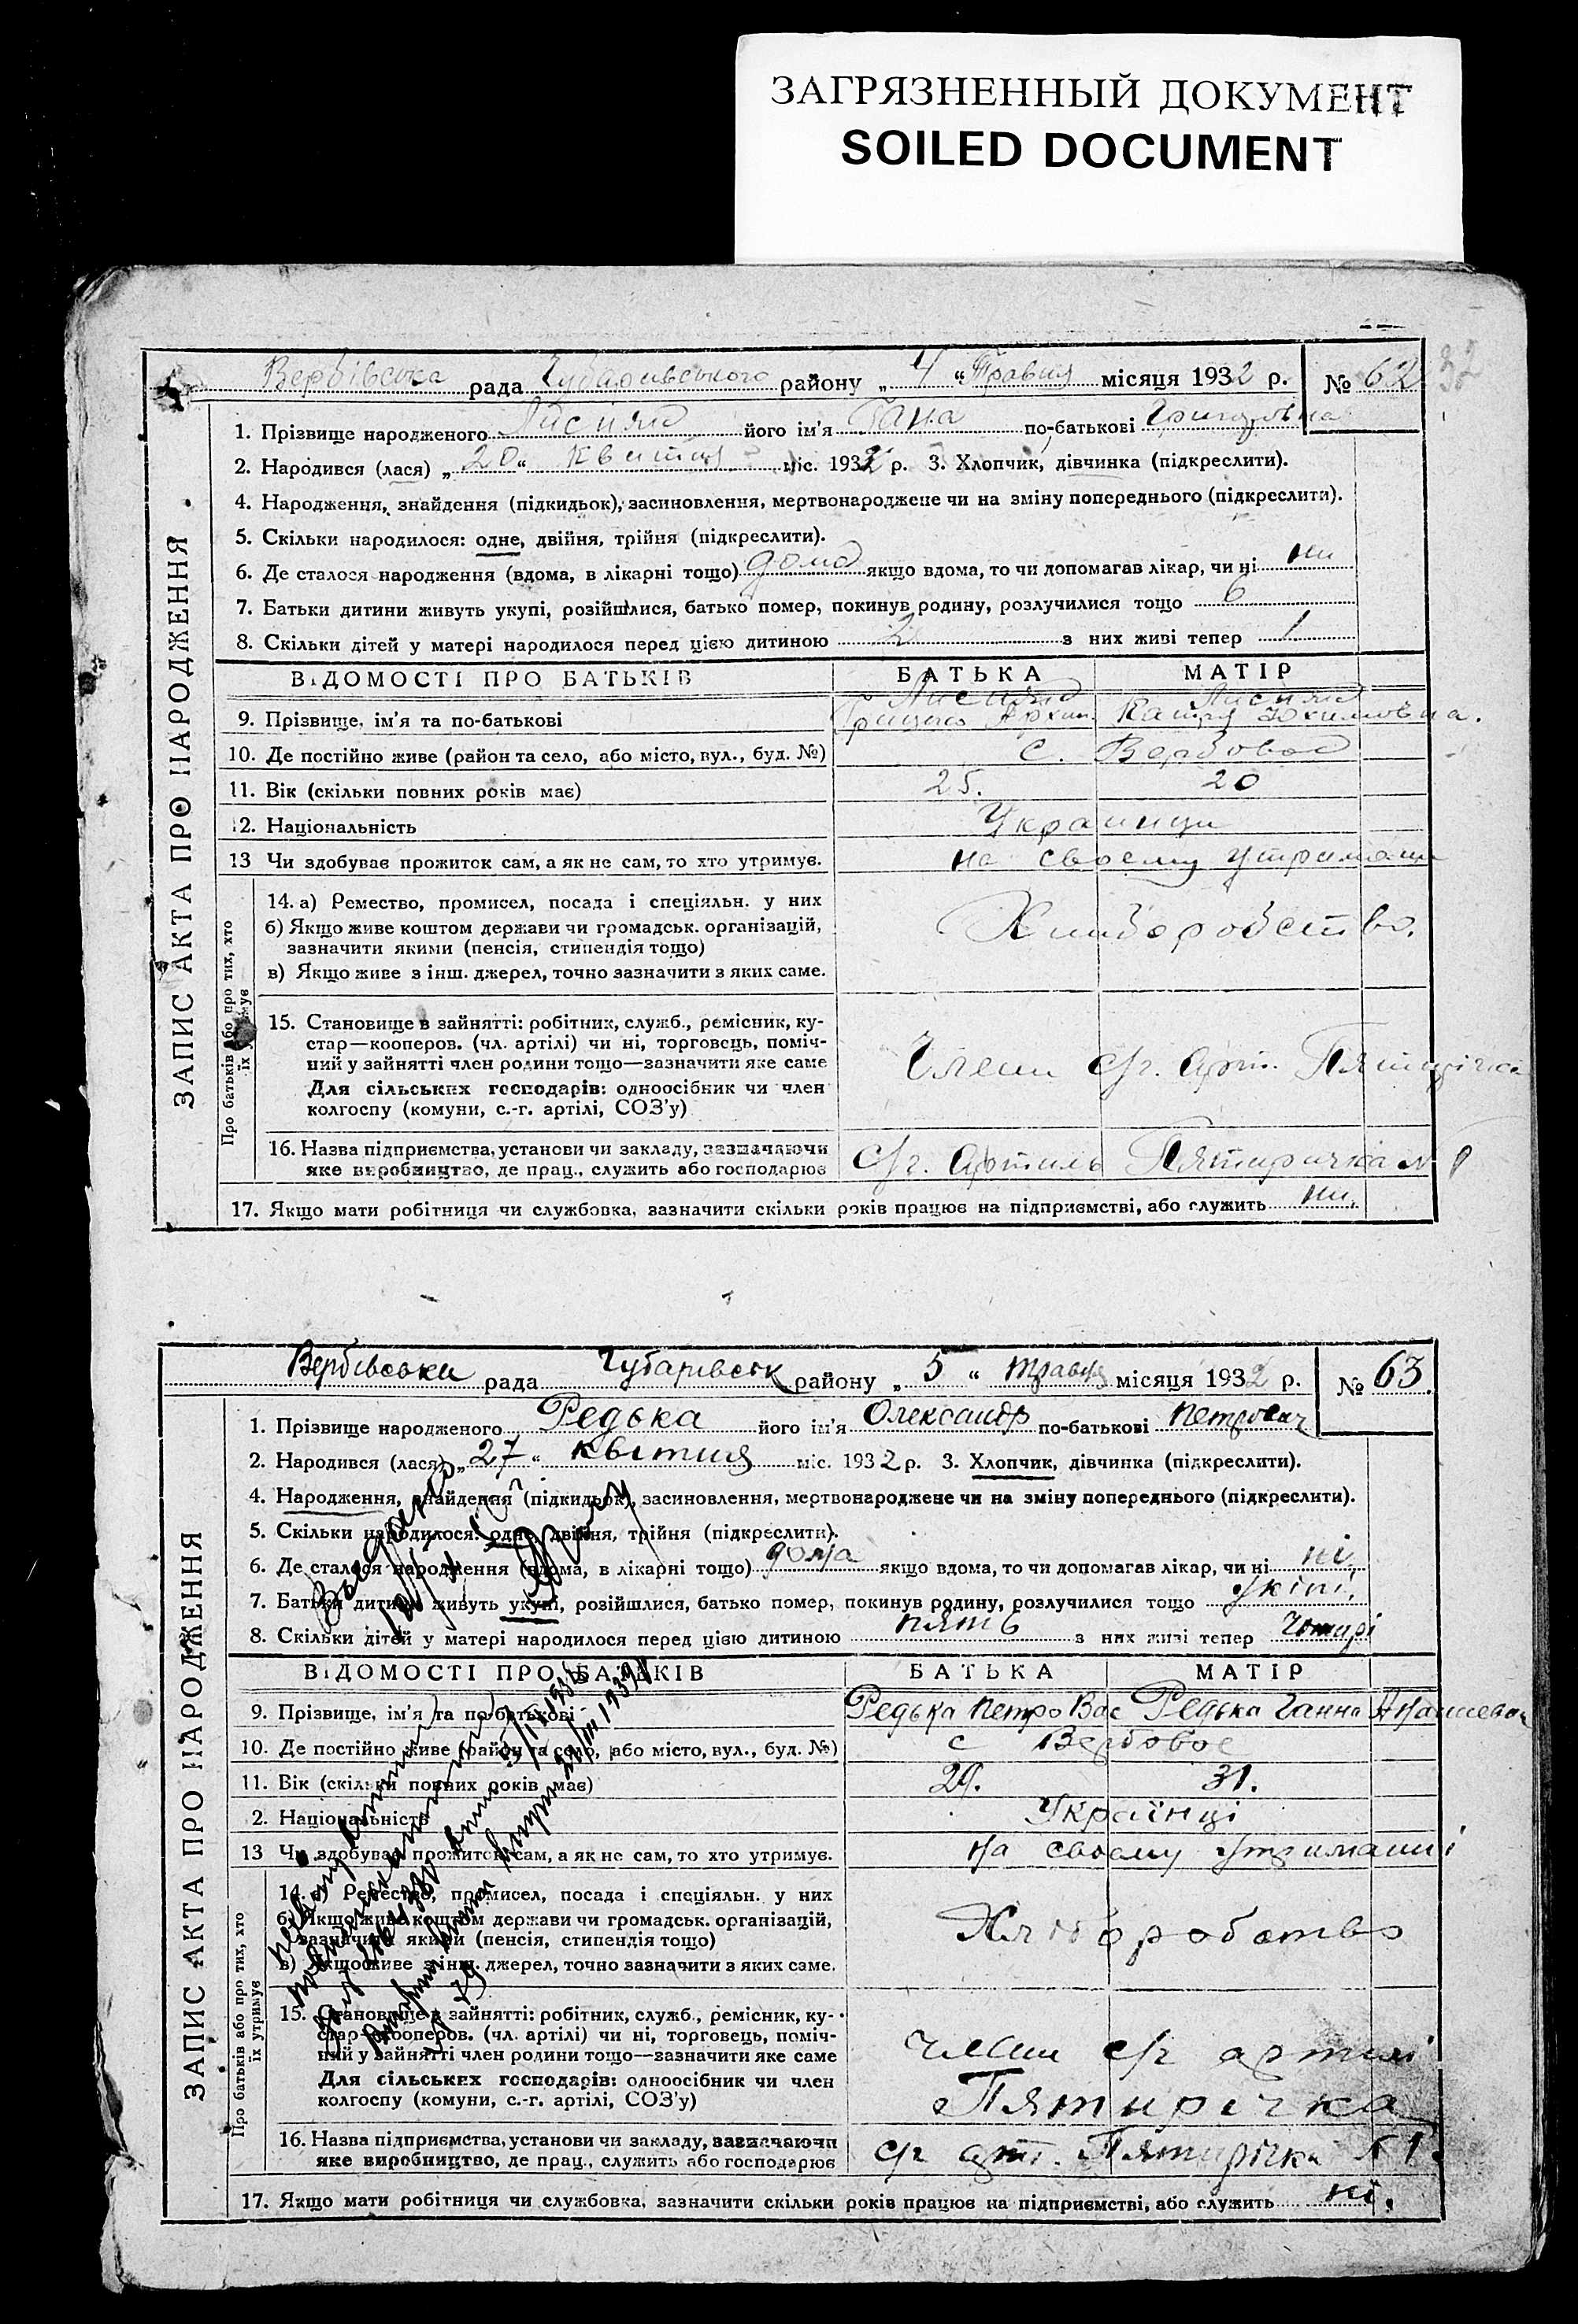 ЗАГРЯЗНЕННЫЙ ДОКУМЕНТ
SOILED DOCUMENT
32
ЗАПИС АКТА ПРО НАРОДЖЕННЯ
Вербівська рада Чубарівського району „ 4 “ Травня місяця 1932 р. № 62
1. Прізвище народженого його ім'я Гана по-батькові
2. Народився (лася) „ 20 “ Квітня міс. 1932 р. 3. Хлопчик, дівчинка (підкреслити).
4. Народження, знайдення (підкидьок), засиновлення, мертвонароджене чи на зміну попереднього (підкреслити).
5. Скільки народилося: одне, двійня, трійня (підкреслити).
6. Де сталося народження (вдома, в лікарні тощо) дома якщо вдома, то чи допомагав лікар, чи ні ни
7. Батьки дитини живуть укупі, розійшлися, батько помер, покинув родину, розлучилися тощо
8. Скільки дітей у матері народилося перед цією дитиною 2 з них живі тепер 1
ВІДОМОСТІ ПРО БАТЬКІВ БАТЬКА МАТІР
9. Прізвище, ім'я та по-батькові
10. Де постійно живе (район та село, або місто, вул., буд. №) с. Вербовое
11. Вік (скільки повних років має) 25. 20
12. Національність Украинци
13 Чи здобуває прожиток сам, а як не сам, то хто утримує. на своему
Про батьків або про тих, хто їх утримує
14. а) Ремество, промисел, посада і спеціяльн. у них
б) Якщо живе коштом держави чи громадськ. організацій,
зазначити якими (пенсія, стипендія тощо)
в) Якщо живе з інш. джерел, точно зазначити з яких саме.
15. Становище в зайнятті: робітник, служб., ремісник, ку-
стар—кооперов. (чл. артілі) чи ні, торговець, поміч-
ний у зайнятті член родини тощо—зазначити яке саме
Для сільських господарів: одноосібник чи член
колгоспу (комуни, с.-г. артілі, СОЗ'у)
Члени с/г. арт. Пятирічка
16. Назва підприємства, установи чи закладу, зазначаючи
яке виробництво, де прац., служить або господарює
с/г. Артиль Пятиричка
17. Якщо мати робітниця чи службовка, зазначити скільки років працює на підприємстві, або служить ни.
ЗАПИС АКТА ПРО НАРОДЖЕННЯ
Вербівська рада Чубарівськ району „ 5 “ травня місяця 1932 р. № 63.
1. Прізвище народженого Редька його ім'я Олександр по-батькові Петрович
2. Народився (лася) „ 27 “ квітня міс. 1932 р. 3. Хлопчик, дівчинка (підкреслити).
4. Народження, знайдення (підкидьок), засиновлення, мертвонароджене чи на зміну попереднього (підкреслити).
5. Скільки народилося: одне, двійня, трійня (підкреслити).
6. Де сталося народження (вдома, в лікарні тощо) дома якщо вдома, то чи допомагав лікар, чи ні ні
7. Батьки дитини живуть укупі, розійшлися, батько помер, покинув родину, розлучилися тощо укіпі,
8. Скільки дітей у матері народилося перед цією дитиною пять з них живі тепер Чотирі
ВІДОМОСТІ ПРО БАТЬКІВ БАТЬКА МАТІР
9. Прізвище, ім'я та по-батькові Редька Петро Вас Редька Ганна
10. Де постійно живе (район та село, або місто, вул., буд. №) с Вербовое
11. Вік (скільки повних років має) 29. 31.
2. Національність Українці
13 Чи здобуває прожиток сам, а як не сам, то хто утримує. на своему утриманні
Про батьків або про тих, хто їх утримує
14. а) Ремество, промисел, посада і спеціяльн. у них
б) Якщо живе коштом держави чи громадськ. організацій,
зазначити якими (пенсія, стипендія тощо)
в) Якщо живе з інш. джерел, точно зазначити з яких саме.
Хліборобство
15. Становище в зайнятті: робітник, служб., ремісник, ку-
стар—кооперов. (чл. артілі) чи ні, торговець, поміч-
ний у зайнятті член родини тощо—зазначити яке саме
Для сільських господарів: одноосібник чи член
колгоспу (комуни, с.-г. артілі, СОЗ'у)
члени с/г артилі
Пятирічка
16. Назва підприємства, установи чи закладу, зазначаючи
яке виробництво, де прац., служить або господарює
с/г арт. Пятирічка
17. Якщо мати робітниця чи службовка, зазначити скільки років працює на підприємстві, або служить ні.